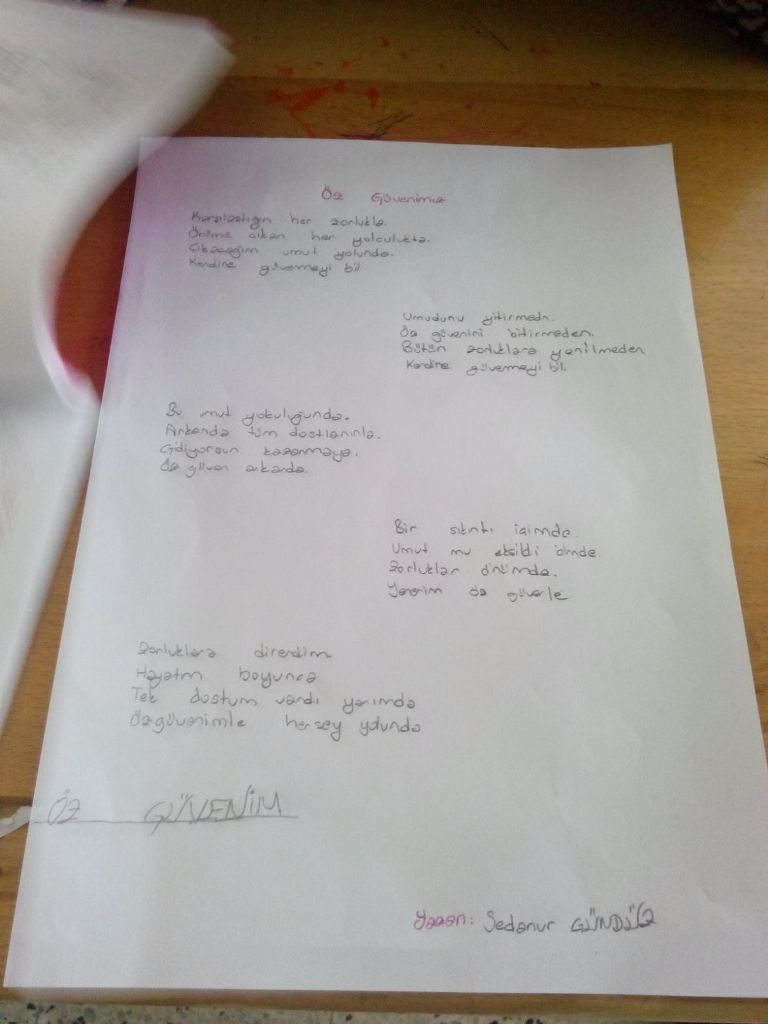 Öz Güvenimiz
Karşılaştığın her zorlukta.
Önüne çıkan her yolculukta.
Çıkacağım umut yolunda.
Kendine güvenmeyi bil
Umudunu yitirmedn.
Öz güvenini bitirmeden.
Bütün zorluklara yenilmeden
Kendine güvenmeyi bil.
Bu umut yolculuğunda.
Arkanda tüm dostlarınla.
Gidiyorsun kazanmaya.
Öz güven arkanda.
Bir sıkıntı içimde.
Umut mu eksildi ömde.
Zorluklar önümde.
Yenerim öz güvenle
Zorluklara direrdim
Hayatm boyunca
Tek dostum vardı yanımda
Özgüvenimle herşey yolunda
ÖZ GÜVENİM
Yazan: Sedanur GÜNDÜZ